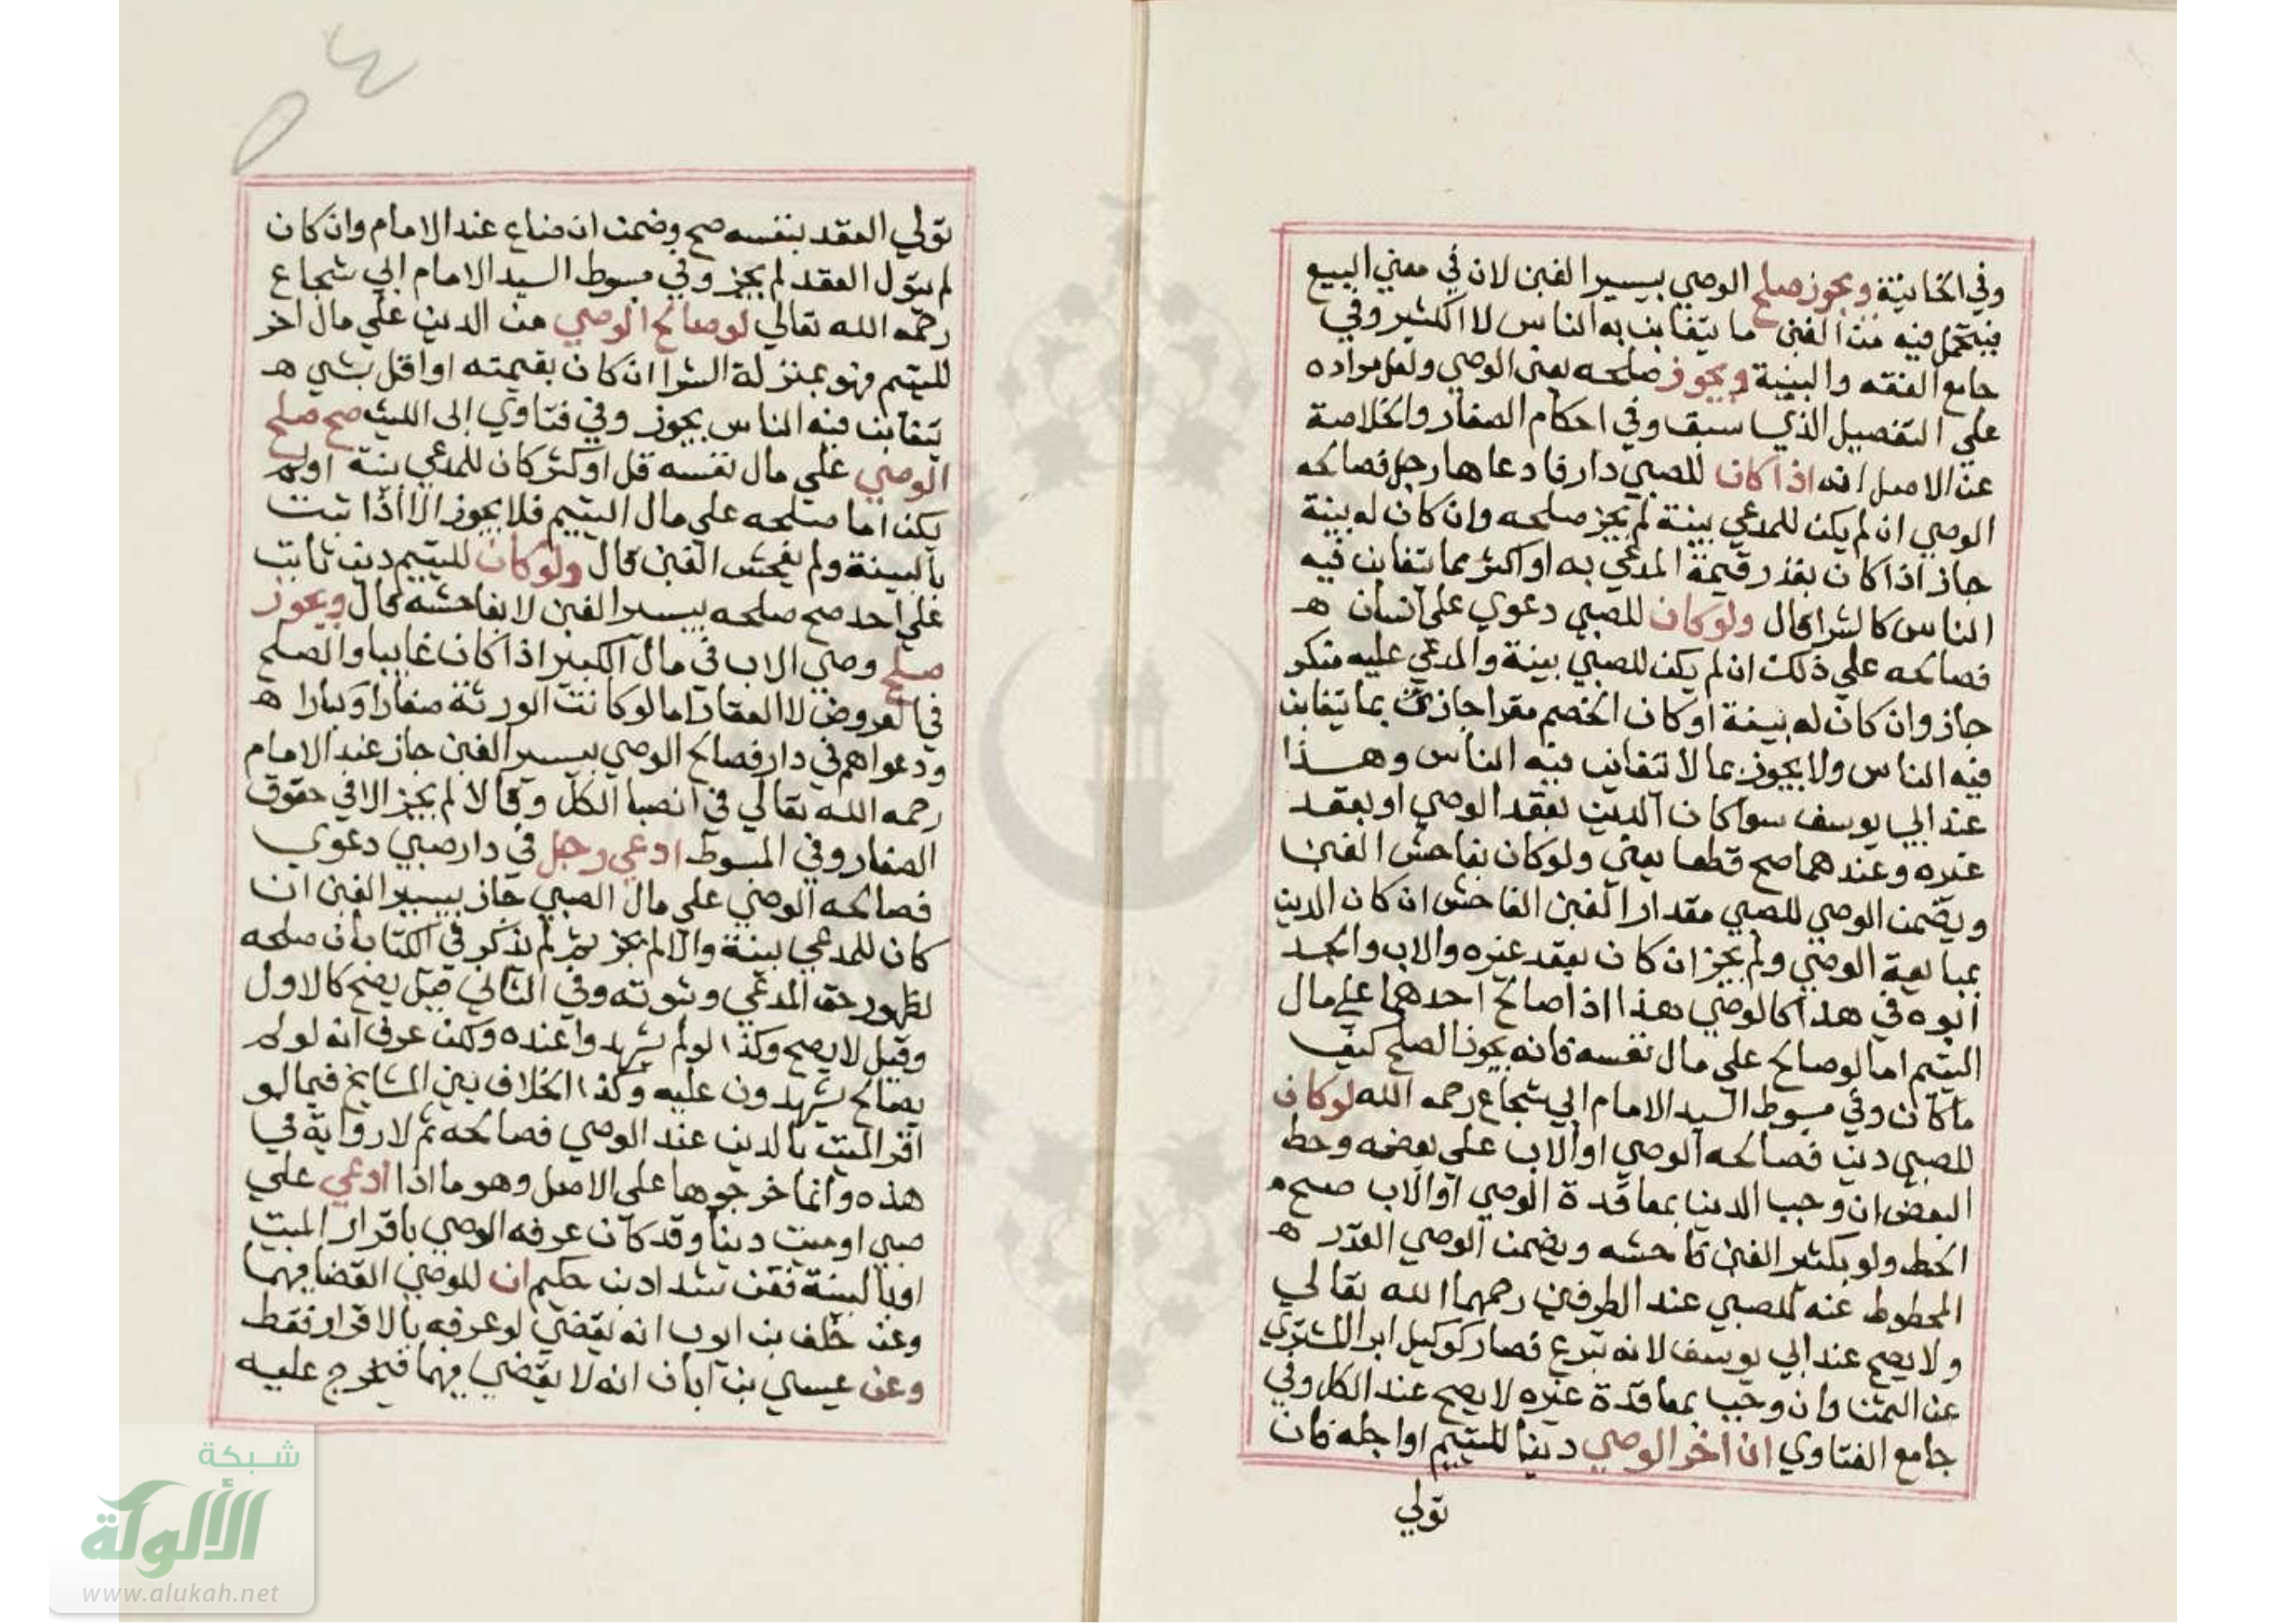 وفي الخانية ويجوز صلح الوصي بيسير الغبن لان في معني البيع
فيتحمل فيه من الغبن ما يتغابن به الناس لا الكثير وفي
جامع الفقه والبينية ويجوز صلحه يعني الوصي ولعل مراده
علي التفصيل الذي سبق وفي احكام الصغار والخلاصة
عن الاصل انه اذا كان للصبي دار فادعاها رجل فصالحه
الوصي ان لم يكن للمدعي بينة لم يجز صلحه وان كان له بينة
جاز اذا كان بقدر قيمة المدعي به او اكثر بما يتغابن فيه
الناس كالشرا قال ولو كان للصبي دعوي علي انسان ه
فصالحه علي ذلك ان لم يكن للصبي بينة والمدعي عليه منكر
جاز وان كان له بينة او كان الخصم مقرا جاز بما يتغابن
فيه الناس ولا يجوز بما لا يتغابن فيه الناس وهذا
عند ابي يوسف سوا كان الدين بعقد الوصي او بعقد
غيره وعندهما صح قطعا يعني ولو كان بفاحش الغبن
ويضمن الوصي للصبي مقدار الغبن الفاحش ان كان الدين
بمبايعة الوصي ولم يجز ان كان بعقد غيره والاب والجد
ابوه في هذا كالوصي هذا اذا صالح احدهما علي مال
اليتيم اما لو صالح علي مال نفسه فانه يجوز الصلح كيف
ما كان وفي مبسوط السيد الامام ابي شجاع رحمه الله لو كان
للصبي دين فصالحه الوصي او الاب علي بعضه وحط
البعض ان وجب الدين بمعاقدة الوصي او الاب صح
الحط ولو بكثير الغبن فاحشه ويضمن الوصي القدر ه
المحطوط عنه للصبي عند الطرفين رحمهما الله تعالي
ولا يصح عند ابي يوسف لانه تبرع فصار كوكيل ابرا المشتري
عن الثمن وان وجب بمعاقدة غيره لا يصح عند الكل وفي
جامع الفتاوي ان اخر الوصي دينا لليتيم او اجله فان
تولي
٥٤
تولي العقد بنفسه صح وضمن ان ضاع عند الامام وان كان
لم يتول العقد لم يجز وفي مبسوط السيد الامام ابي شجاع
رحمه الله تعالي لو صالح الوصي من الدين علي مال اخر
لليتيم فهو بمنزلة الشرا ان كان بقيمته او اقل بشي ه
يتغابن فيه الناس يجوز وفي فتاوي ابي الليث صح صلح
الوصي علي مال نفسه قل او كثر كان للمدعي بينة او لم
يكن اما صلحه علي مال اليتيم فلا يجوز الا اذا ثبت
بالبينة ولم يفحش الغبن قال ولو كان لليتيم دين ثابت
علي احد صح صلحه بيسير الغبن لا بفاحشه قال ويجوز
صلح وصي الاب في مال الكبير اذا كان غايبا والصلح
في العروض لا العقار اما لو كانت الورثة صغارا وكبارا ه
ودعواهم في دار فصالح الوصي بيسير الغبن جاز عند الامام
رحمه الله تعالي في انصبا الكل وقالا لم يجز الا في حقوق
الصغار وفي المبسوط ادعي رجل في دار صبي دعوي
فصالحه الوصي علي مال الصبي جاز بيسير الغبن ان
كان للمدعي بينة والا لم يجز ثم لم يذكر في الكتاب ان صلحه
لظهور حق المدعي وثبوته وفي الثاني قيل يصح كالاول
وقيل لا يصح وكذا لو لم يشهدوا عنده ولكن عرف انه لو لم
يصالح يشهدون عليه وكذا الخلاف بين المشايخ فيما لو
اقر الميت بالدين عند الوصي فصالحه ثم لا رواية في
هذه وانما خرجوها علي الاصل وهو ما اذا ادعي علي
صبي او ميت دينا وقد كان عرفه الوصي باقرار الميت
او بالبينة فعن شداد بن حكيم ان للوصي القضا فيهما
وعن خلف بن ايوب انه يقضي لو عرفه بالاقرار فقط
وعن عيسي بن ابان انه لا يقضي فيهما فيخرج عليه
شبكة
الألوكة
www.alukah.net